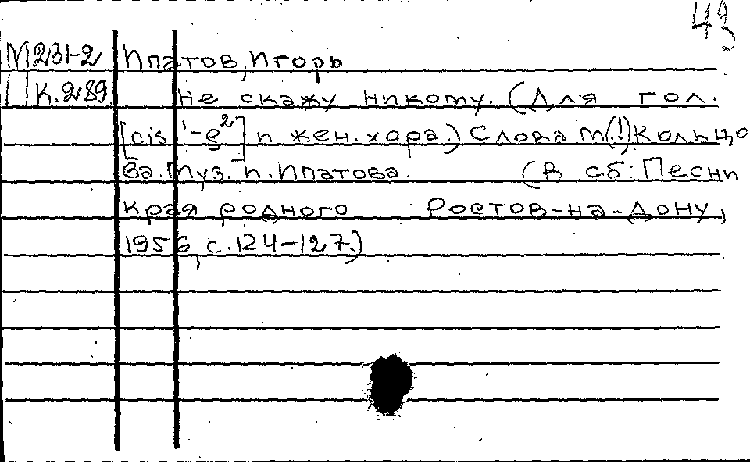 43
М231-2 Ипатов, Игорь
К.289 Не скажу никому. (Для гол.
[cis¹-g²] и жен.хора.) Слова М(!)Кольцо
ва. Муз. И. Ипатова. (В сб: Песни
края родного Ростов-на-Дону,
1956, с.124-127.)